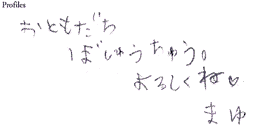 Profiles
おともだち
ぼしゅうちゅう。
よろしくね♡
まゆ